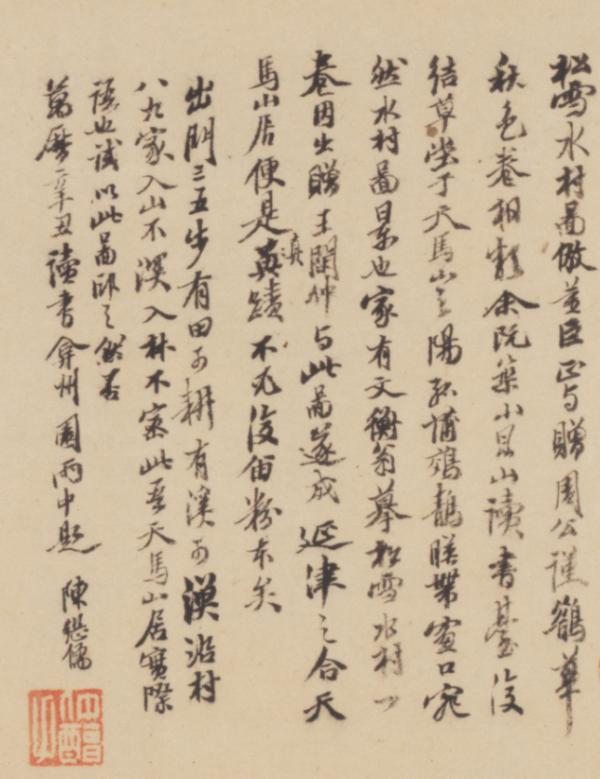 松雪水村圖倣董巨正與贈周公謹鵲華
秋色卷相類余既築小崑山讀書臺復
結草堂于天馬山之陽菰蒲鵁鶄映帶窗口宛
然水村圖景也家有文衡翁摹松雪水村一
卷因出贈王閑仲與此圖遂成延津之合天
馬山居便是真蹟不必復留粉本矣
出門三五步有田可耕有溪可漁沿村
八九家入山不深入林不密此吾天馬山居實際
語也試以此圖印之然否
萬曆辛丑讀書弇州園雨中題 陳繼儒